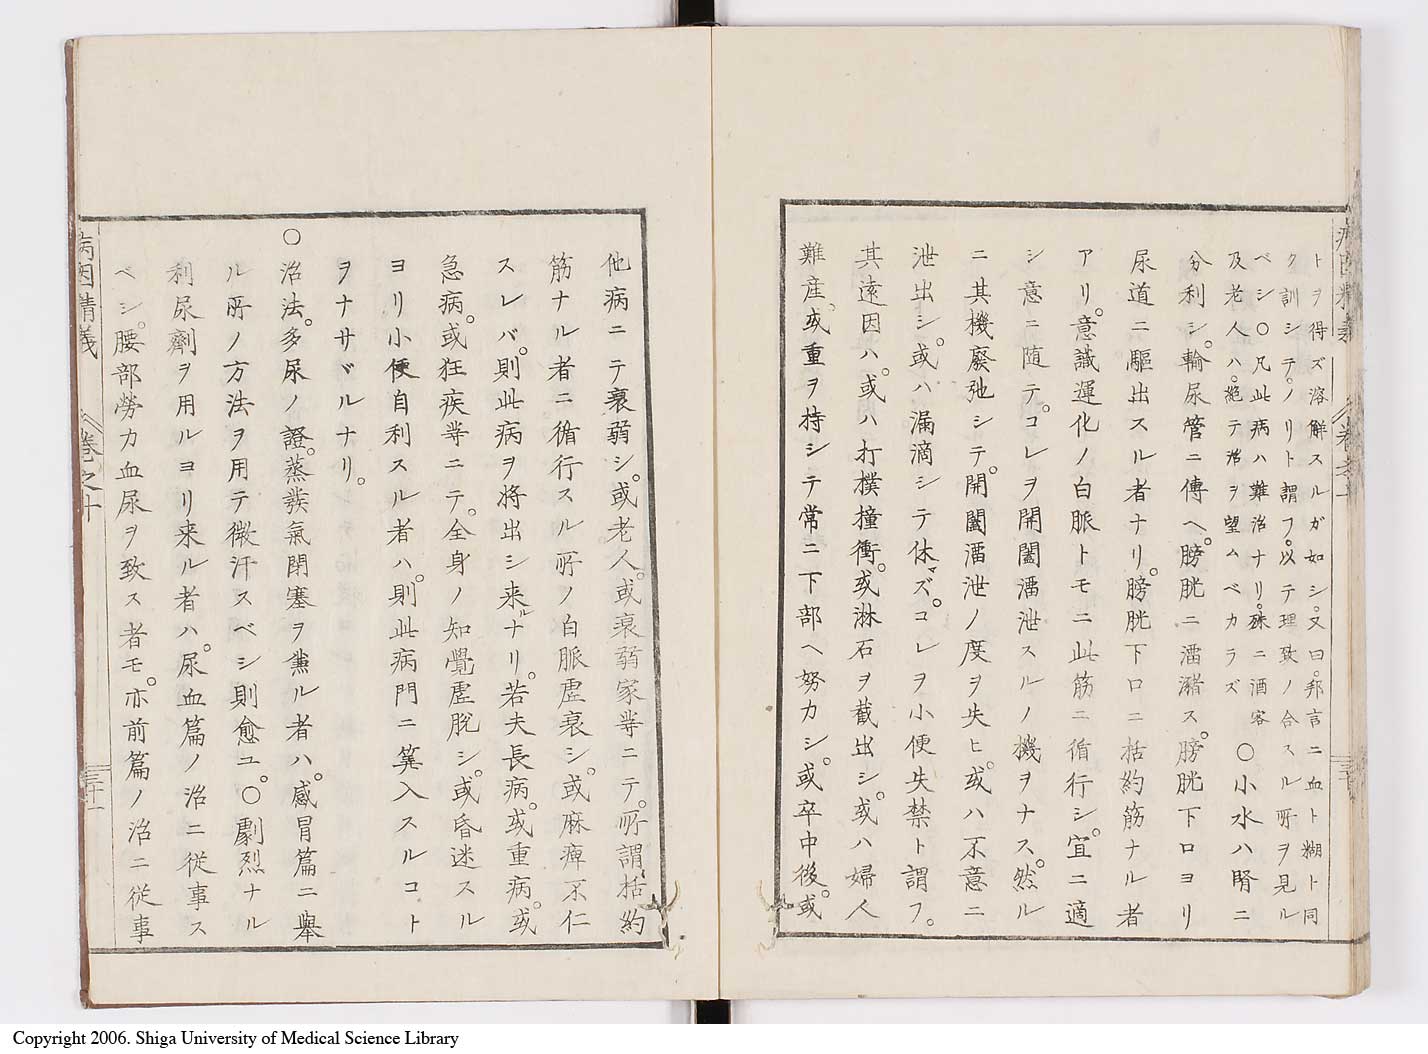 トヲ得ズ溶解スルガ如シ。又曰。邦言ニ血ト糊ト同
ク訓シテ。ノリト謂フ。以テ理致ノ合スル所ヲ見ル
ベシ〇凡此病ハ難治ナリ。殊ニ酒客
及老人ハ。絶テ治ヲ望ムベカラズ
〇小水ハ腎ニ
分利シ。輸尿管ニ傳ヘ。膀胱ニ溜瀦ス。膀胱下口ヨリ
尿道ニ驅出スル者ナリ。膀胱下口ニ括約筋ナル者
アリ。意識運化ノ白脈トモニ此筋ニ循行シ。宜ニ適
シ意ニ随テ。コレヲ開闔溜泄スルノ機ヲナス。然ル
ニ其機廢弛シテ。開闔溜泄ノ度ヲ失ヒ。或ハ不意ニ
泄出シ。或ハ漏滴シテ休マズ。コレヲ小便失禁ト謂フ。
其遠因ハ。或ハ打撲撞衝。或淋石ヲ截出シ。或ハ婦人
難産。或重ヲ持シテ常ニ下部ヘ努力シ。或卒中後。或
他病ニテ衰弱シ。或老人。或衰弱家等ニテ。所謂括約
筋ナル者ニ循行スル所ノ白脈虚衰シ。或麻痺不仁
スレバ。則此病ヲ将出シ来ルナリ。若夫長病。或重病。或
急病。或狂疾等ニテ。全身ノ知覺虚脱シ。或昏迷スル
ヨリ小便自利スル者ハ。則此病門ニ算入スルコト
ヲナサヾルナリ。
〇治法。多尿ノ證。蒸發氣閉塞ヲ兼ル者ハ。感冒篇ニ擧
ル所ノ方法ヲ用テ微汗スベシ則愈ユ。〇劇烈ナル
利尿劑ヲ用ルヨリ来ル者ハ。尿血篇ノ治ニ従事ス
ベシ。腰部勞力血尿ヲ致ス者モ。亦前篇ノ治ニ従事
病因精義
卷之十
三十一
Copyright 2006. Shiga University of Medical Science Library